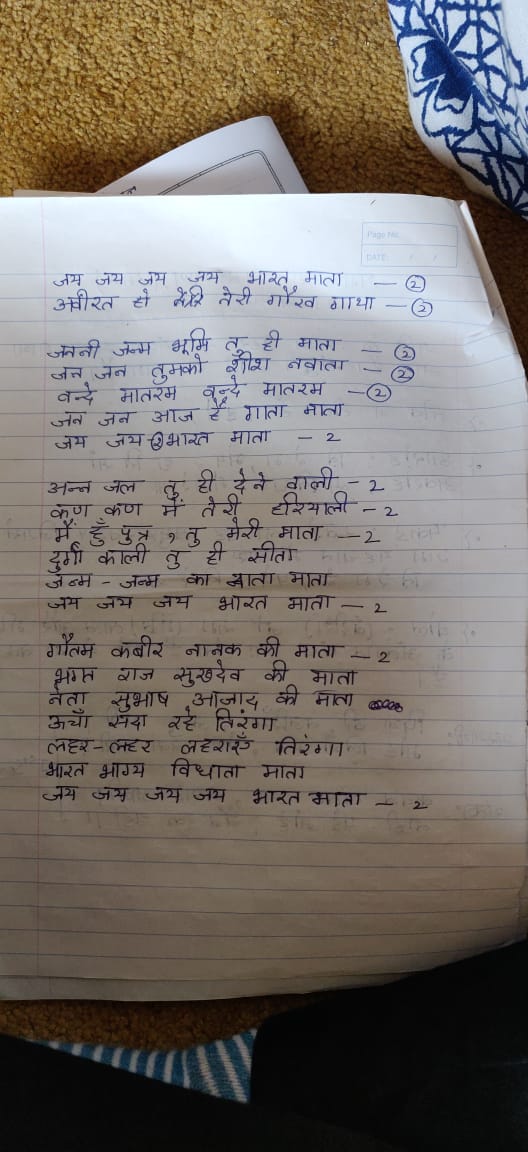 Page No.
DATE: / /
जय जय जय जय भारत माता — ②
अवीरत हो तेरी गौरव गाथा — ②
जननी जन्म भूमि तु ही माता — ②
जन जन तुमको शीश नवाता — ②
वन्दे मातरम वन्दे मातरम — ②
जन जन आज है गाता माता
जय जय भारत माता - 2
अन्न जल तु ही देने वाली - 2
कण कण में तेरी हरियाली - 2
मैं हूँ पुत्र, तु मेरी माता - 2
दुर्गा काली तु ही सीता
जन्म - जन्म का नाता माता
जय जय जय भारत माता — 2
गौतम कबीर नानक की माता — 2
भगत राज सुखदेव की माता
नेता सुभाष आजाद की माता
ऊचाँ सदा रहे तिरंगा
लहर-लहर लहराएँ तिरंगा
भारत भाग्य विधाता माता
जय जय जय जय भारत माता — 2